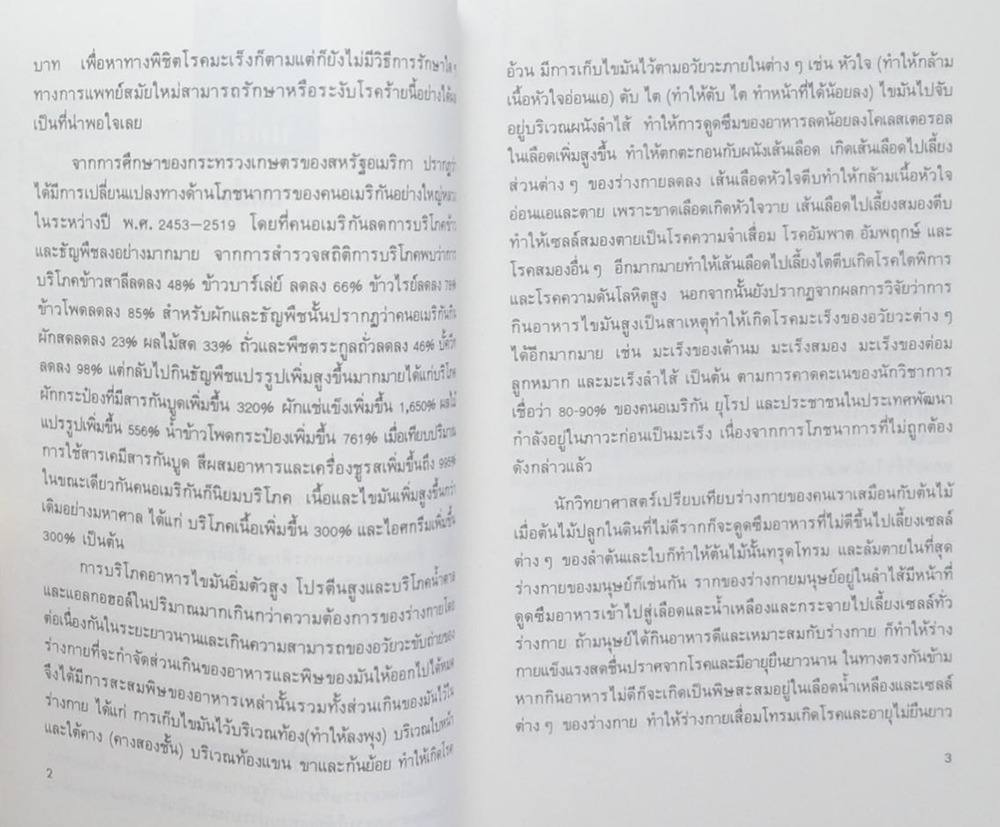 บาท เพื่อหาทางพิชิตโรคมะเร็งก็ตามแต่ก็ยังไม่มีวิธีการรักษาใด ๆ
ทางการแพทย์สมัยใหม่สามารถรักษาหรือระงับโรคร้ายนี้อย่างได้ผล
เป็นที่น่าพอใจเลย
จากการศึกษาของกระทรวงเกษตรของสหรัฐอเมริกา ปรากฏว่า
ได้มีการเปลี่ยนแปลงทางด้านโภชนาการของคนอเมริกันอย่างใหญ่หลวง
ในระหว่างปี พ.ศ. 2453–2519 โดยที่คนอเมริกันลดการบริโภคข้าว
และธัญพืชลงอย่างมากมาย จากการสำรวจสถิติการบริโภคพบว่าการ
บริโภคข้าวสาลีลดลง 48% ข้าวบาร์เล่ย์ ลดลง 66% ข้าวไรย์ลดลง 78%
ข้าวโพดลดลง 85% สำหรับผักและธัญพืชนั้นปรากฏว่าคนอเมริกันกิน
ผักสดลดลง 23% ผลไม้สด 33% ถั่วและพืชตระกูลถั่วลดลง 46%
ลดลง 98% แต่กลับไปกินธัญพืชแปรรูปเพิ่มสูงขึ้นมากมายได้แก่บริโภค
ผักกระป๋องที่มีสารกันบูดเพิ่มขึ้น 320% ผักแช่แข็งเพิ่มขึ้น 1,650% ผลไม้
แปรรูปเพิ่มขึ้น 556% น้ำข้าวโพดกระป๋องเพิ่มขึ้น 761% เมื่อเทียบปริมาณ
การใช้สารเคมีสารกันบูด สีผสมอาหารและเครื่องชูรสเพิ่มขึ้นถึง 995%
ในขณะเดียวกันคนอเมริกันก็นิยมบริโภค เนื้อและไขมันเพิ่มสูงขึ้นกว่า
เดิมอย่างมหาศาล ได้แก่ บริโภคเนื้อเพิ่มขึ้น 300% และไอศกรีมเพิ่มขึ้น
300% เป็นต้น
การบริโภคอาหารไขมันอิ่มตัวสูง โปรตีนสูงและบริโภคน้ำตาล
และแอลกอฮอล์ในปริมาณมากเกินกว่าความต้องการของร่างกายโดย
ต่อเนื่องกันในระยะยาวนานและเกินความสามารถของอวัยวะขับถ่ายของ
ร่างกายที่จะกำจัดส่วนเกินของอาหารและพิษของมันให้ออกไปได้หมด
จึงได้มีการสะสมพิษของอาหารเหล่านั้นรวมทั้งส่วนเกินของมันไว้ใน
ร่างกาย ได้แก่ การเก็บไขมันไว้บริเวณท้อง(ทำให้ลงพุง) บริเวณใบหน้า
และใต้คาง (คางสองชั้น) บริเวณท้องแขน ขาและก้นย้อย ทำให้เกิดโรค
2
อ้วน มีการเก็บไขมันไว้ตามอวัยวะภายในต่าง ๆ เช่น หัวใจ (ทำให้กล้าม
เนื้อหัวใจอ่อนแอ) ตับ ไต (ทำให้ตับ ไต ทำหน้าที่ได้น้อยลง) ไขมันไปจับ
อยู่บริเวณผนังลำไส้ ทำให้การดูดซึมของอาหารลดน้อยลงโคเลสเตอรอล
ในเลือดเพิ่มสูงขึ้น ทำให้ตกตะกอนกับผนังเส้นเลือด เกิดเส้นเลือดไปเลี้ยง
ส่วนต่าง ๆ ของร่างกายลดลง เส้นเลือดหัวใจตีบทำให้กล้ามเนื้อหัวใจ
อ่อนแอและตาย เพราะขาดเลือดเกิดหัวใจวาย เส้นเลือดไปเลี้ยงสมองตีบ
ทำให้เซลล์สมองตายเป็นโรคความจำเสื่อม โรคอัมพาต อัมพฤกษ์ และ
โรคสมองอื่น ๆ อีกมากมายทำให้เส้นเลือดไปเลี้ยงไตตีบเกิดโรคไตพิการ
และโรคความดันโลหิตสูง นอกจากนั้นยังปรากฏจากผลการวิจัยว่าการ
กินอาหารไขมันสูงเป็นสาเหตุทำให้เกิดโรคมะเร็งของอวัยวะต่าง ๆ
ได้อีกมากมาย เช่น มะเร็งของเต้านม มะเร็งสมอง มะเร็งของต่อม
ลูกหมาก และมะเร็งลำไส้ เป็นต้น ตามการคาดคะเนของนักวิชาการ
เชื่อว่า 80-90% ของคนอเมริกัน ยุโรป และประชาชนในประเทศพัฒนา
กำลังอยู่ในภาวะก่อนเป็นมะเร็ง เนื่องจากการโภชนาการที่ไม่ถูกต้อง
ดังกล่าวแล้ว
นักวิทยาศาสตร์เปรียบเทียบร่างกายของคนเราเสมือนกับต้นไม้
เมื่อต้นไม้ปลูกในดินที่ไม่ดีรากก็จะดูดซึมอาหารที่ไม่ดีขึ้นไปเลี้ยงเซลล์
ต่าง ๆ ของลำต้นและใบก็ทำให้ต้นไม้นั้นทรุดโทรม และล้มตายในที่สุด
ร่างกายของมนุษย์ก็เช่นกัน รากของร่างกายมนุษย์อยู่ในลำไส้มีหน้าที่
ดูดซึมอาหารเข้าไปสู่เลือดและน้ำเหลืองและกระจายไปเลี้ยงเซลล์ทั่ว
ร่างกาย ถ้ามนุษย์ได้กินอาหารดีและเหมาะสมกับร่างกาย ก็ทำให้ร่าง
กายแข็งแรงสดชื่นปราศจากโรคและมีอายุยืนยาวนาน ในทางตรงกันข้าม
หากกินอาหารไม่ดีก็จะเกิดเป็นพิษสะสมอยู่ในเลือดน้ำเหลืองและเซลล์
ต่าง ๆ ของร่างกาย ทำให้ร่างกายเสื่อมโทรมเกิดโรคและอายุไม่ยืนยาว
3